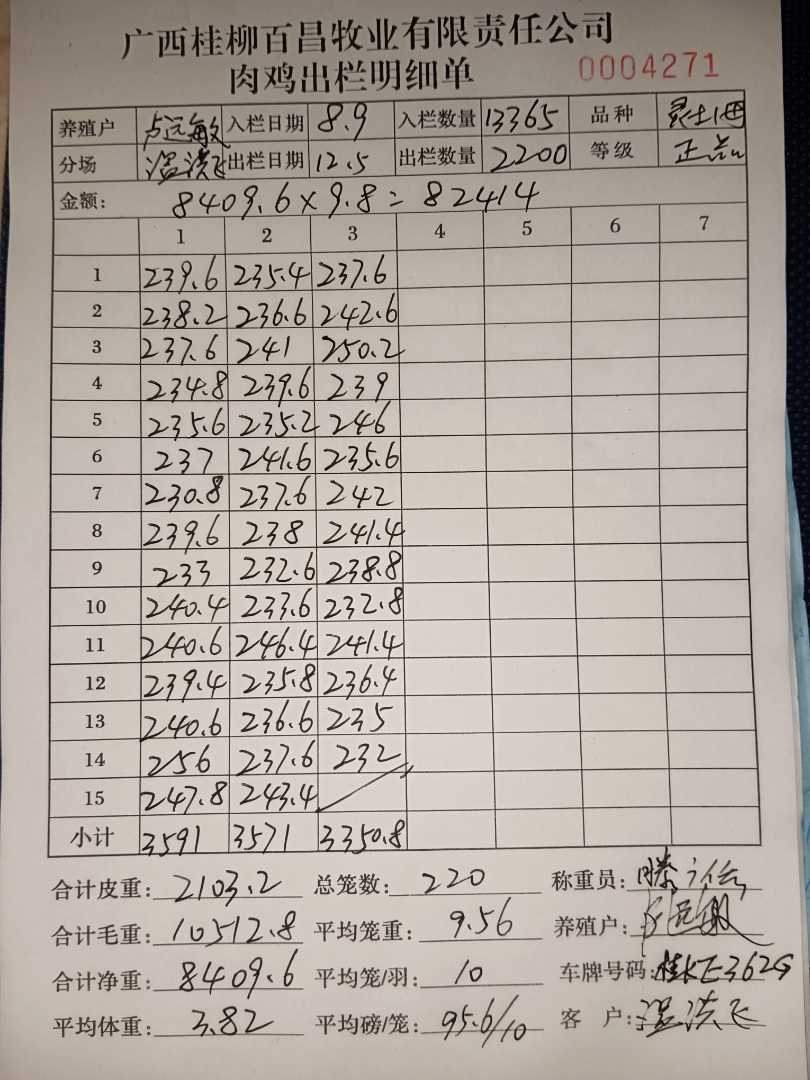 广西桂柳百昌牧业有限责任公司
肉鸡出栏明细单 0004271
养殖户 卢远敏 入栏日期 8.9 入栏数量 13365 品种
分场 温洪飞 出栏日期 12.5 出栏数量 2200 等级 正品
金额: 8409.6×9.8=82414
1 2 3 4 5 6 7
1 239.6 235.4 237.6
2 238.2 236.6 242.6
3 237.6 241 250.2
4 234.8 239.6 239
5 235.6 235.2 246
6 237 241.6 235.6
7 230.8 237.6 242
8 239.6 238 241.4
9 233 232.6 238.8
10 240.4 233.6 232.8
11 240.6 246.4 241.4
12 239.4 235.8 236.4
13 240.6 236.6 235
14 256 237.6 232
15 247.8 243.4
小计 3591 3571 3350.8
合计皮重: 2103.2 总笼数: 220 称重员:
合计毛重: 10512.8 平均笼重: 9.56 养殖户: 卢远敏
合计净重: 8409.6 平均笼/羽: 10 车牌号码:
平均体重: 3.82 平均磅/笼: 95.6/10 客户: 温洪飞